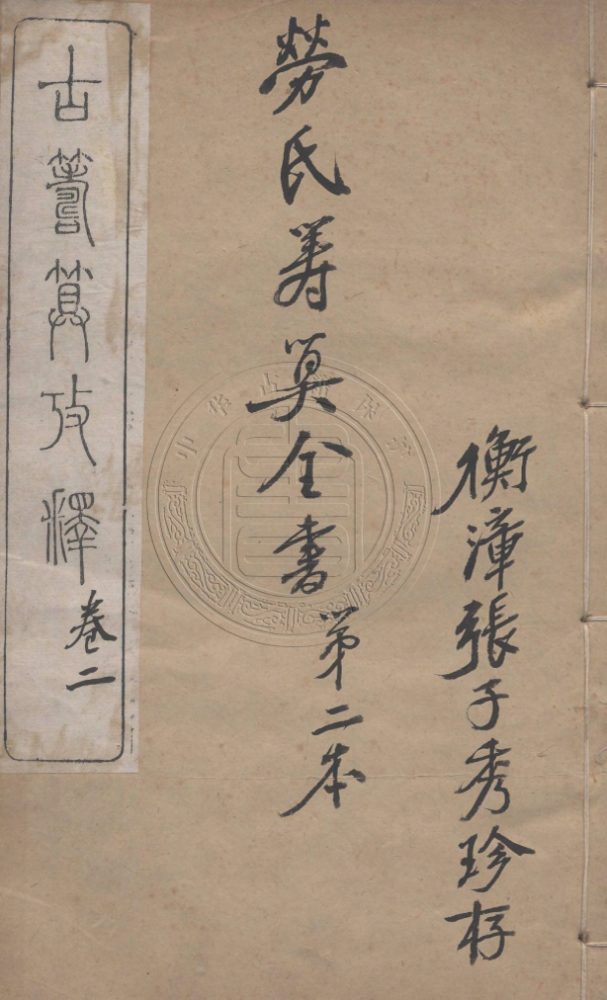 衡漳張子秀珍存
勞氏筹算全書第二本
古籌算攷釋卷二